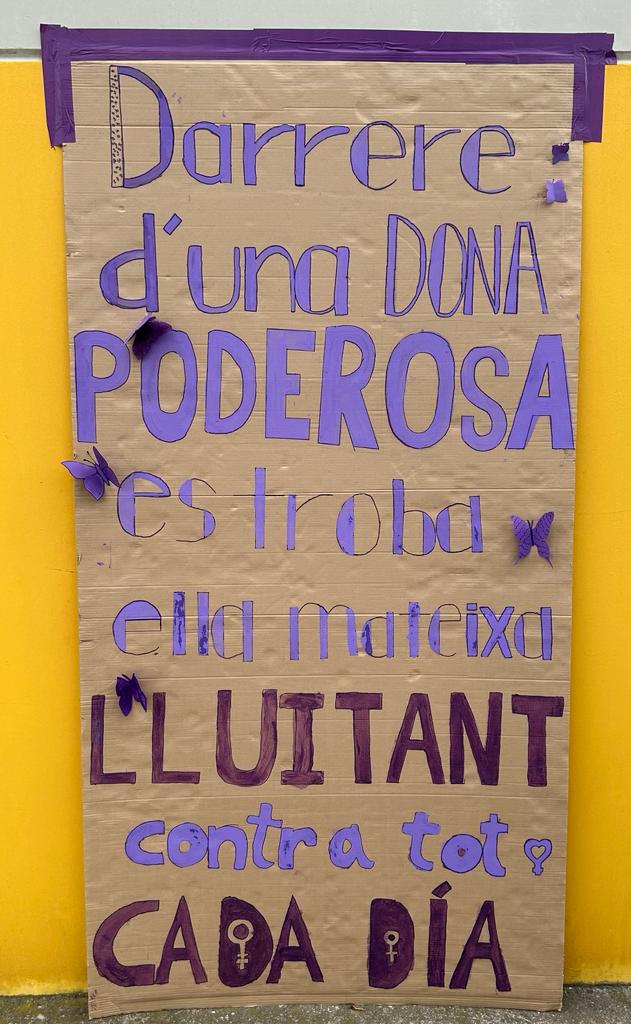 Darrere
d'una DONA
PODEROSA
es troba
ella mateixa
LLUITANT
contra tot
CADA DÍA